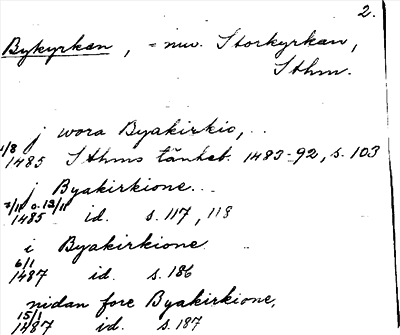 2.
Bykyrkan, = nuv. Storkyrkan,
Sthm.
j wora Byakirkio, ..
1/8 1485 Sthms tänkeb. 1483-92, s. 103
j Byakirkione...
7/11 o. 12/11 1485 id. s. 117, 118
i Byakirkione
6/1 1487 id. s. 186
nidan fore Byakirkione,
15/1 1487 id. s. 187